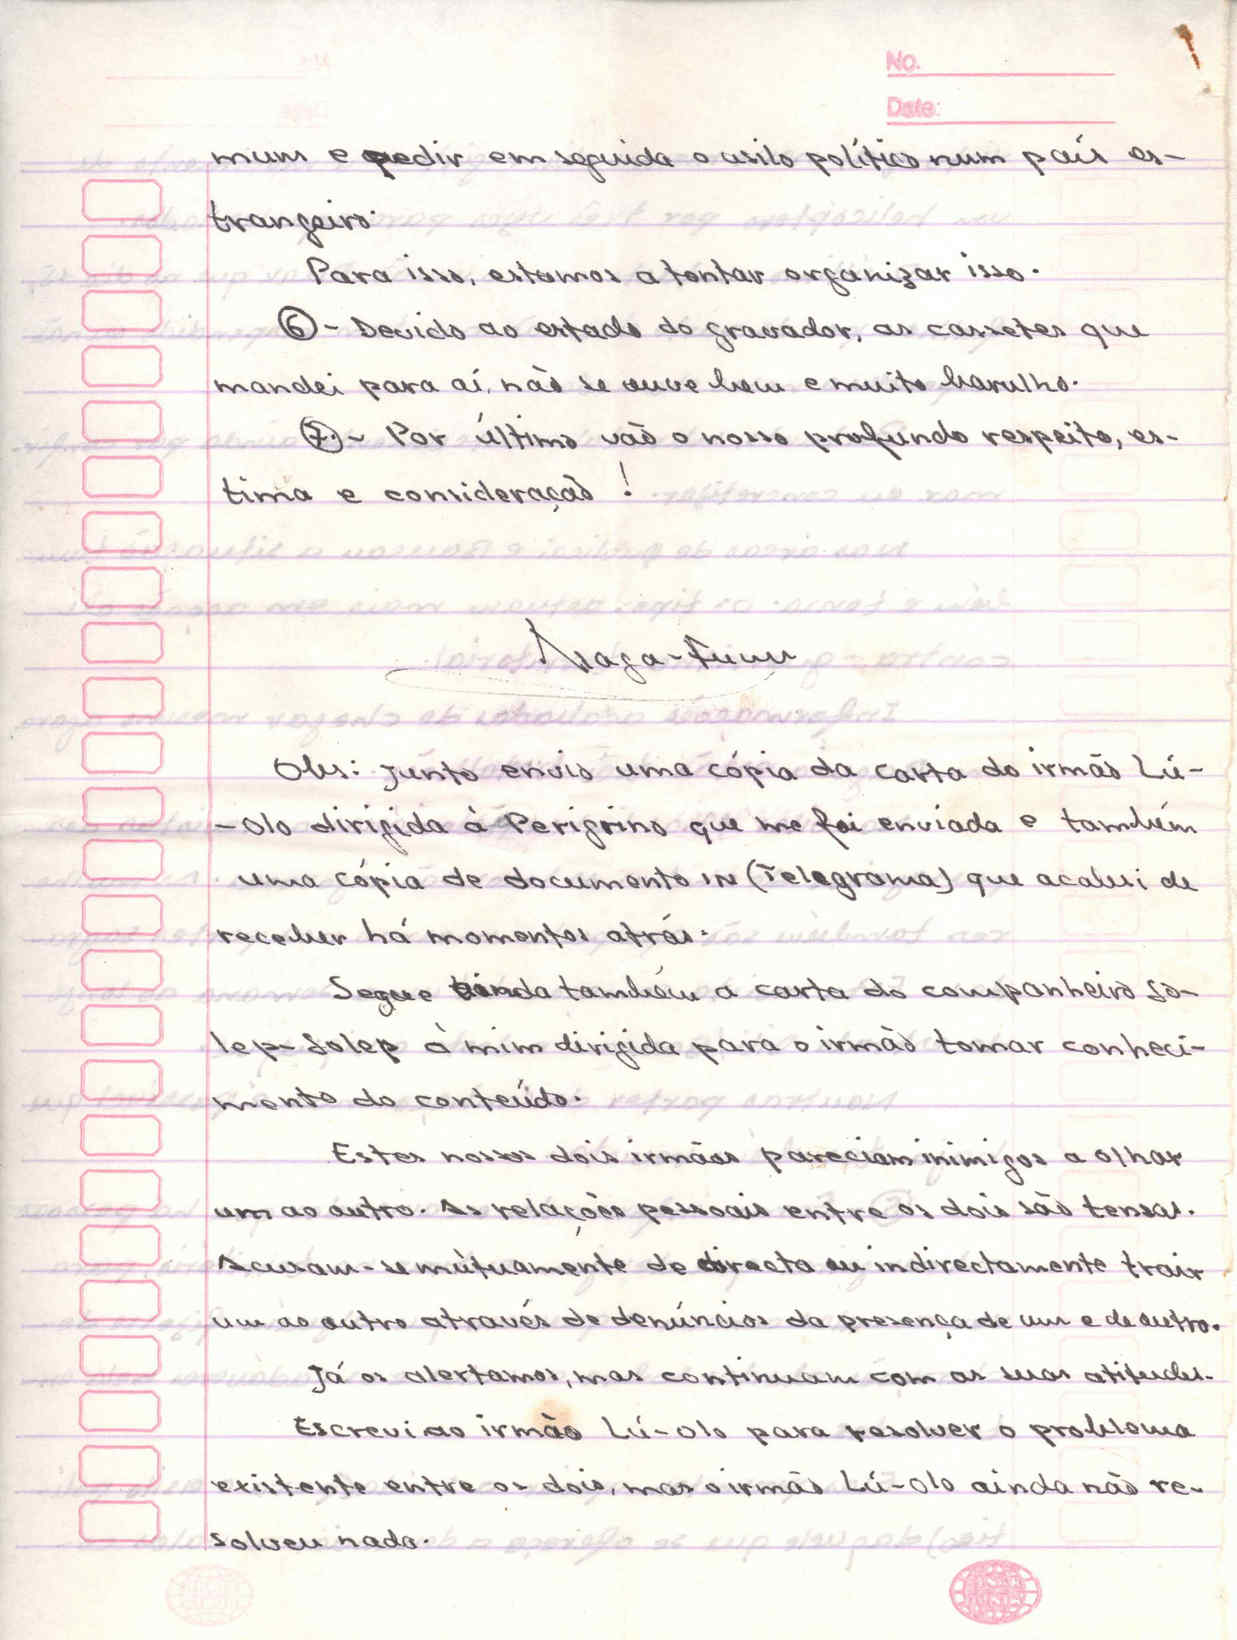 No.
Date:
mum e pedir em seguida o asilo político num país es-
trangeiro.
Para isso, estamos a tentar organizar isso.
6 - Devido ao estado do gravador, as cassetes que
mandei para aí, não se ouve bem e muito barulho.
7. - Por último vão o nosso profundo respeito, es-
tima e consideração!
Obs: Junto envio uma cópia da carta do irmão Lú-
-Olo dirigida à Perigrino que me foi enviada e também
uma cópia de documento IN (Telegrama) que acabei de
receber há momentos atrás.
Segue também a carta do companheiro So-
lep-Solep à mim dirigida para o irmão tomar conheci-
mento do conteúdo.
Estes nossos dois irmãos pareciam inimigos a olhar
um ao outro. As relações pessoais entre os dois são tensas.
Acusam-se mùtuamente de directa ou indirectamente trair
um ao outro através de denúncias da presença de um e de outro.
Já os alertamos, mas continuam com as suas atitudes.
Escrevi ao irmão Lú-Olo para resolver o problema
existente entre os dois, mas o irmão Lú-Olo ainda não re-
solveu nada.